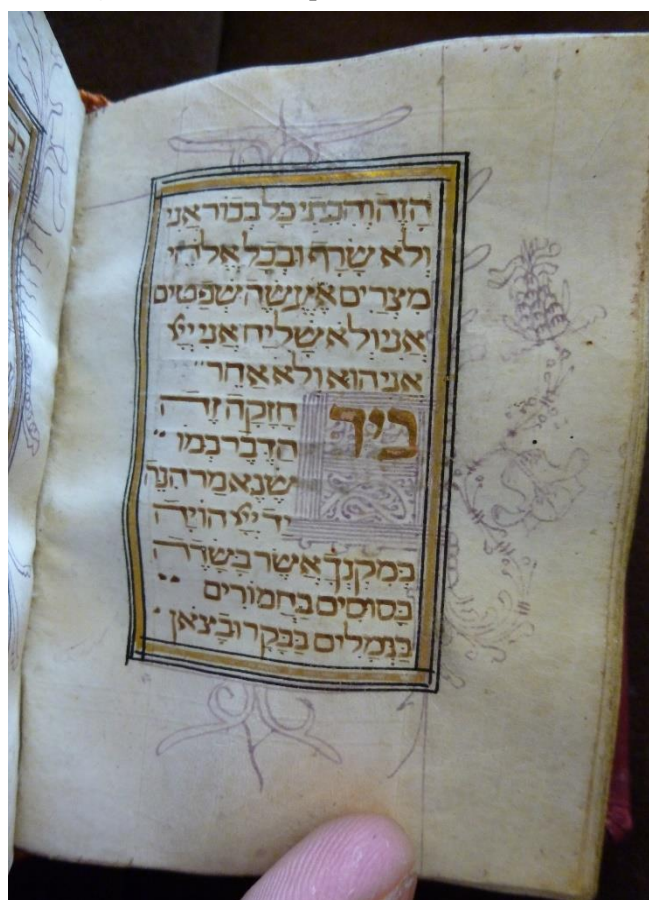 הַזֶּה וְהִכֵּתִי כָּל בְּכוֹר אֲנִי
וְלֹא שָׂרָף וּבְכָל אֱלֹהֵי
מִצְרַיִם אֶעֱשֶׂה שְׁפָטִים
אֲנִי וְלֹא שָׁלִיחַ אֲנִי יְיָ
אֲנִי הוּא וְלֹא אַחֵר
בְּיַד חֲזָקָה זֶה
הַדֶּבֶר כְּמוֹ
שֶׁנֶּאֱמַר הִנֵּה
יַד יְיָ הוֹיָה
בְּמִקְנְךָ אֲשֶׁר בַּשָּׂדֶה
בַּסּוּסִים בַּחֲמוֹרִים
בַּגְּמַלִּים בַּבָּקָר וּבַצֹּאן